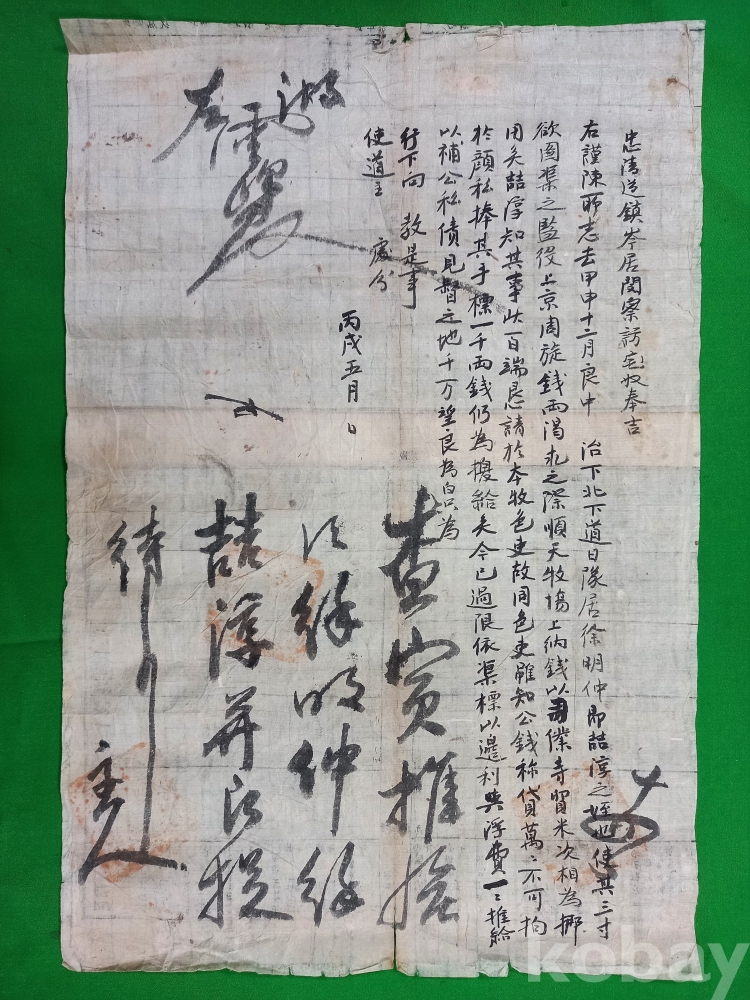 忠清道鎭岑居閔察訪宅奴奉吉
右謹陳所志去甲申十二月良中 治下北下道日隊居徐明仲即喆淳之侄也使其三寸
欲圖渠之監役上京周旋錢兩渴求之際順天牧場上納錢以司僕寺貿米次相為挪
用矣喆淳知其事狀百端懇請於本牧色吏故同色吏雖知公錢称貸萬萬不可拘
於顔私捧其手標一千兩錢仍為撥給矣今已過限依渠標以邊利與浮費一一推給
以補公私債見督之地千万望良為白只為
行下向 教是事
使道主 處分
丙戌五月 日
查實推給
次徐明仲徐
喆淳并以捉
待事
主人
kobay